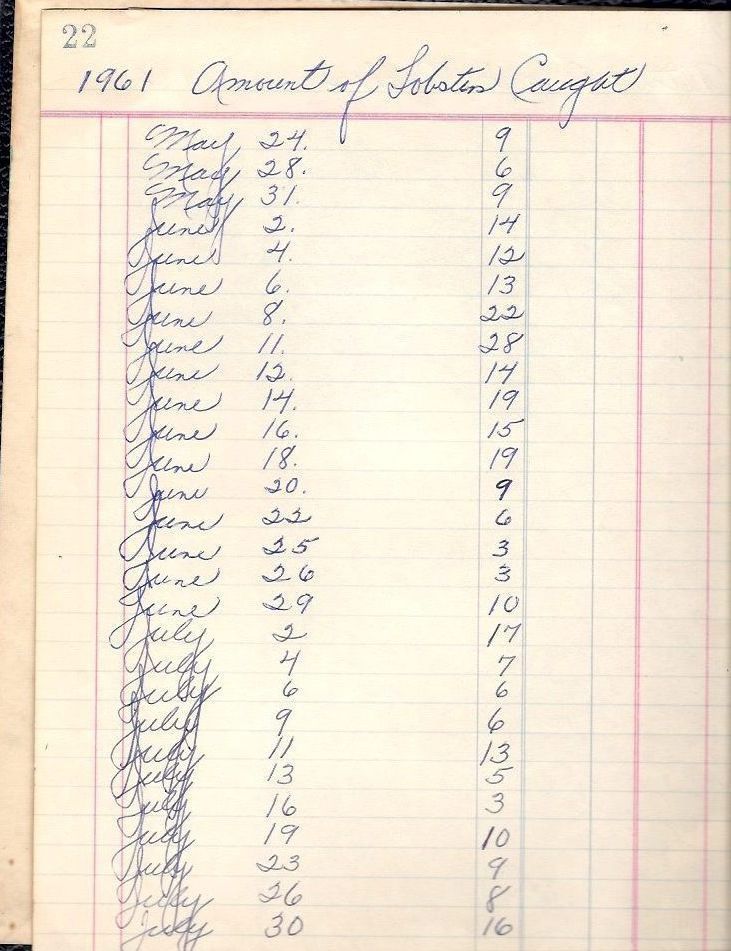 22
1961 Amount of Lobsters Caught
May 24. 9
May 28. 6
May 31. 9
June 2. 14
June 4. 12
June 6. 13
June 8. 22
June 11. 28
June 12. 14
June 14. 19
June 16. 15
June 18. 19
June 20. 9
June 22 6
June 25 3
June 26 3
June 29 10
July 2 17
July 4 7
July 6 6
July 9 6
July 11 13
July 13 5
July 16 3
July 19 10
July 23 9
July 26 8
July 30 16